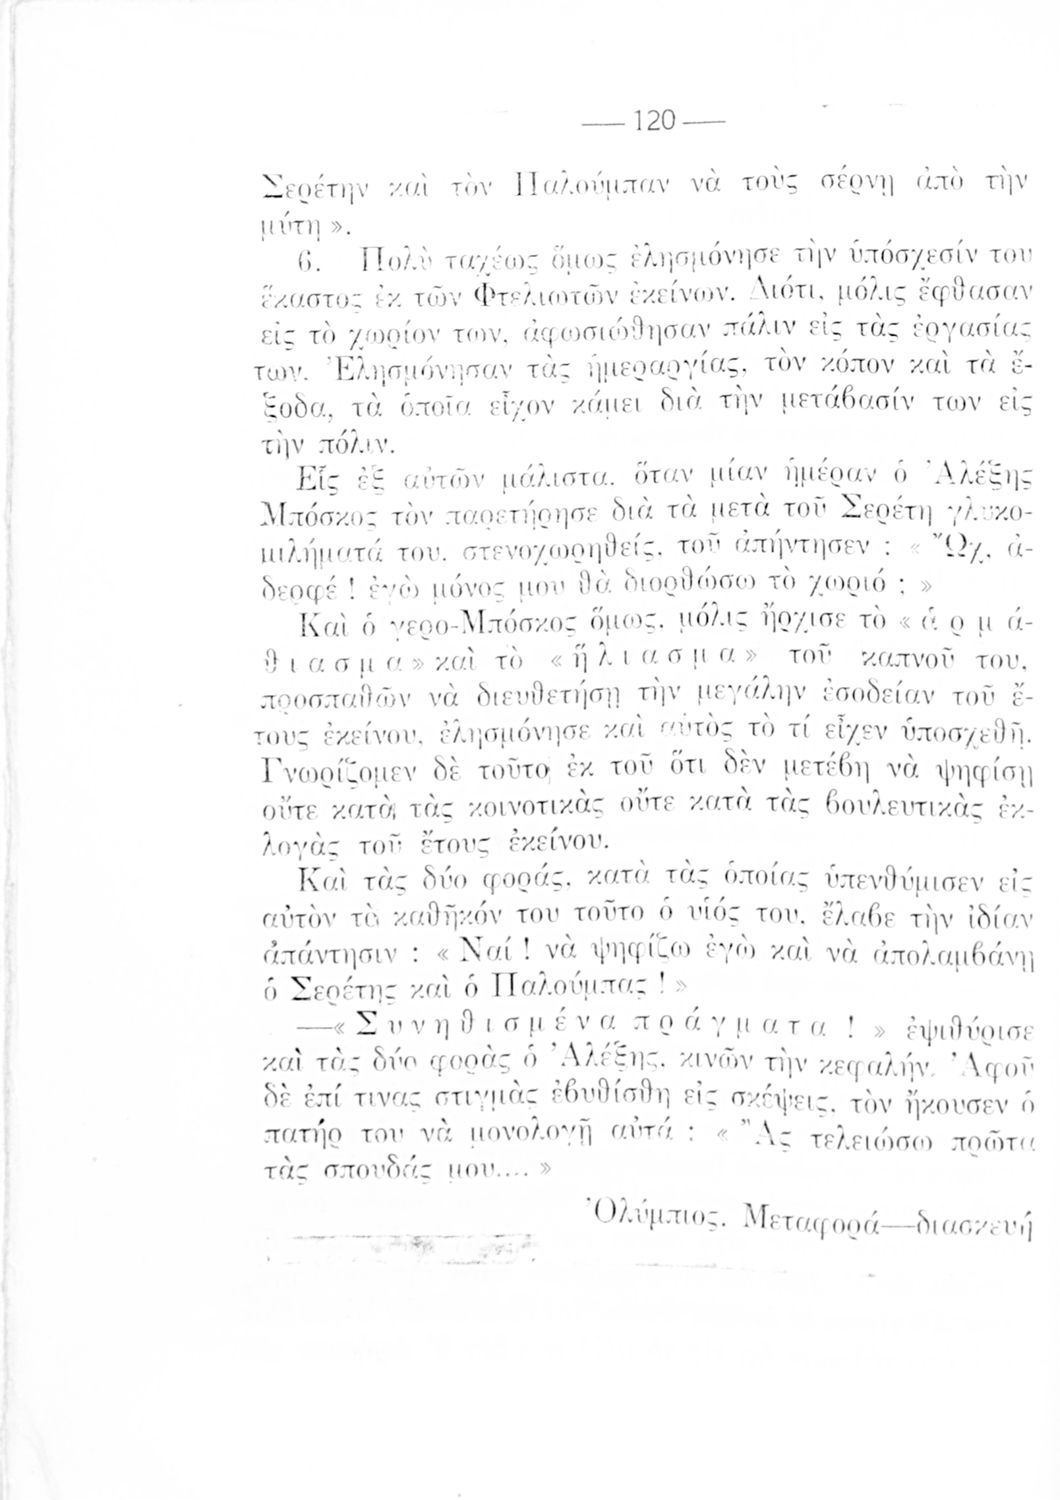 — 120 —
Σερέτην καὶ τὸν Παλούμπαν νὰ τοὺς σέρνῃ ἀπὸ τὴν
μύτη ».
6. Πολὺ ταχέως ὅμως ἐλησμόνησε τὴν ὑπόσχεσίν του
ἕκαστος ἐκ τῶν Φτελιωτῶν ἐκείνων. Διότι, μόλις ἔφθασαν
εἰς τὸ χωρίον των, ἀφωσιώθησαν πάλιν εἰς τὰς ἐργασίας
των. Ἐλησμόνησαν τὰς ἡμεραργίας, τὸν κόπον καὶ τὰ ἔ-
ξοδα, τὰ ὁποῖα εἶχον κάμει διὰ τὴν μετάβασίν των εἰς
τὴν πόλιν.
Εἷς ἐξ αὐτῶν μάλιστα, ὅταν μίαν ἡμέραν ὁ Ἀλέξης
Μπόσκος τὸν παρετήρησε διὰ τὰ μετὰ τοῦ Σερέτη γλυκο-
μιλήματά του, στενοχωρηθείς, τοῦ ἀπήντησεν : « Ὤχ, ἀ-
δερφέ ! ἐγὼ μόνος μου θὰ διορθώσω τὸ χωριό ; »
Καὶ ὁ γερο-Μπόσκος ὅμως, μόλις ἤρχισε τὸ « ἁ ρ μ ά-
θ ι α σ μ α » καὶ τὸ « ἥ λ ι α σ μ α » τοῦ καπνοῦ του,
προσπαθῶν νὰ διευθετήσῃ τὴν μεγάλην ἐσοδείαν τοῦ ἔ-
τους ἐκείνου, ἐλησμόνησε καὶ αὐτὸς τὸ τί εἶχεν ὑποσχεθῆ.
Γνωρίζομεν δὲ τοῦτο ἐκ τοῦ ὅτι δὲν μετέβη νὰ ψηφίσῃ
οὔτε κατὰ τὰς κοινοτικὰς οὔτε κατὰ τὰς βουλευτικὰς ἐκ-
λογὰς τοῦ ἔτους ἐκείνου.
Καὶ τὰς δύο φοράς, κατὰ τὰς ὁποίας ὑπενθύμισεν εἰς
αὐτὸν τὸ καθῆκόν του τοῦτο ὁ υἱός του, ἔλαβε τὴν ἰδίαν
ἀπάντησιν : « Ναί ! νὰ ψηφίζω ἐγὼ καὶ νὰ ἀπολαμβάνῃ
ὁ Σερέτης καὶ ὁ Παλούμπας ! »
—« Σ υ ν η θ ι σ μ έ ν α π ρ ά γ μ α τ α ! » ἐψιθύρισε
καὶ τὰς δύο φορὰς ὁ Ἀλέξης, κινῶν τὴν κεφαλήν. Ἀφοῦ
δὲ ἐπί τινας στιγμὰς ἐβυθίσθη εἰς σκέψεις, τὸν ἤκουσεν ὁ
πατήρ του νὰ μονολογῇ αὐτά : « Ἂς τελειώσω πρῶτα
τὰς σπουδάς μου.... »
Ὀλύμπιος, Μεταφορά—διασκευή